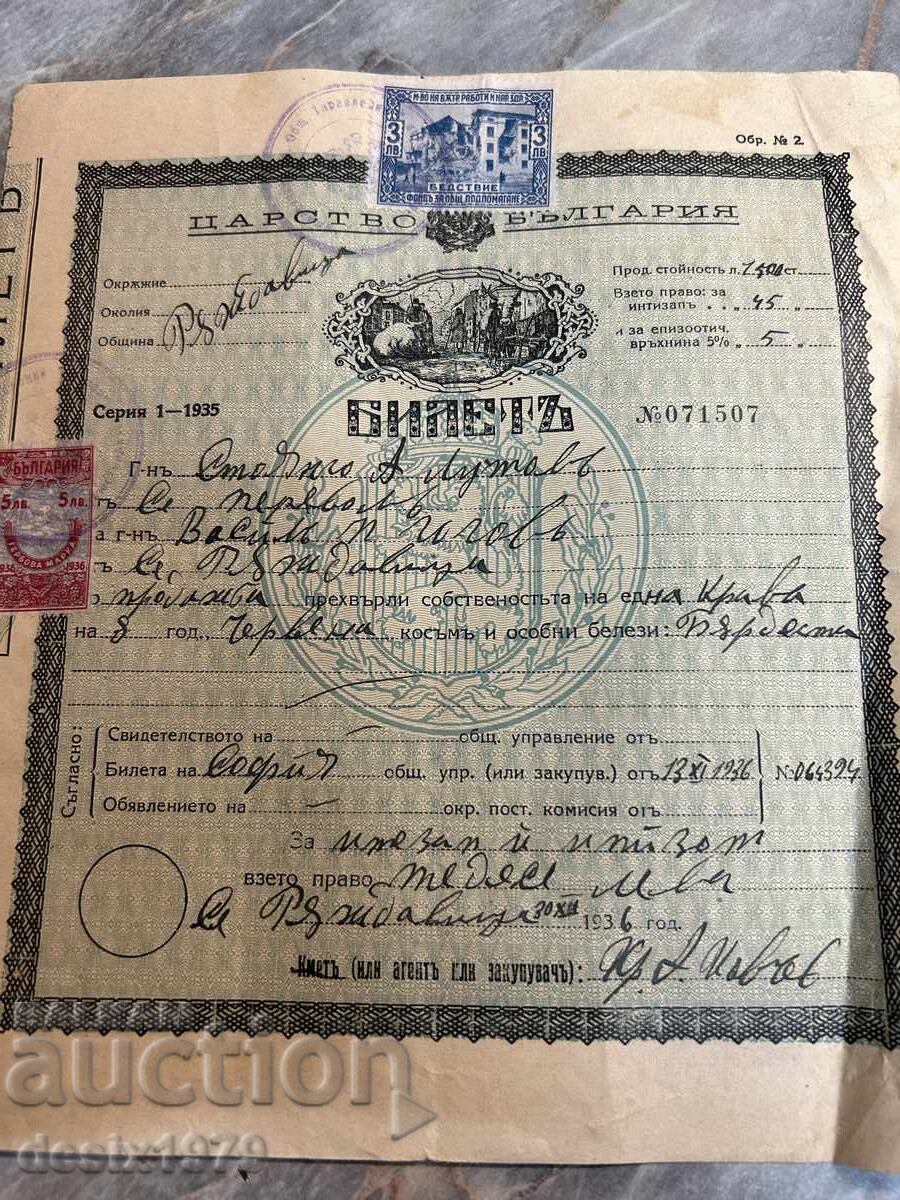 М-ВО НА ВЖТР. РАБОТИ И НАР. ЗДР.
3 ЛВ. 3 ЛВ.
БЕДСТВИЕ
ФОНДЪ ЗА ОБЩ. ПОДПОМАГАНЕ
Обр. № 2.
ЦАРСТВО БЪЛГАРИЯ
Окржжие
Околия
Община Ряждавица
Прод. стойность л. 1500 ст.
Взето право: за
интизапъ . . „ 45 „
и за епизоотич.
връхнина 5% „ 5 „
Серия 1—1935
БИЛЕТЪ
№071507
БЪЛГАРИЯ
5 лв. 5 лв.
ГЕРБОВА МАРКА
1936 1936
Г-нъ Стоянчо А
Се
г-нъ Василъ Гоговъ
Се Ряждавица
продажба прехвърли собствеността на една Крава
на 8 год., Червена косъмъ и особни белези:
Съгласно:
Свидетелството на — общ. управление отъ
Билета на София общ. упр. (или закупув.) отъ 13 XI 1936 № 064394
Обявлението на — окр. пост. комисия отъ
За
взето право лева
Се Ряждавица 30 XII 1936 год.
Кметъ (или агентъ или закупувачъ):
auction
desix1979